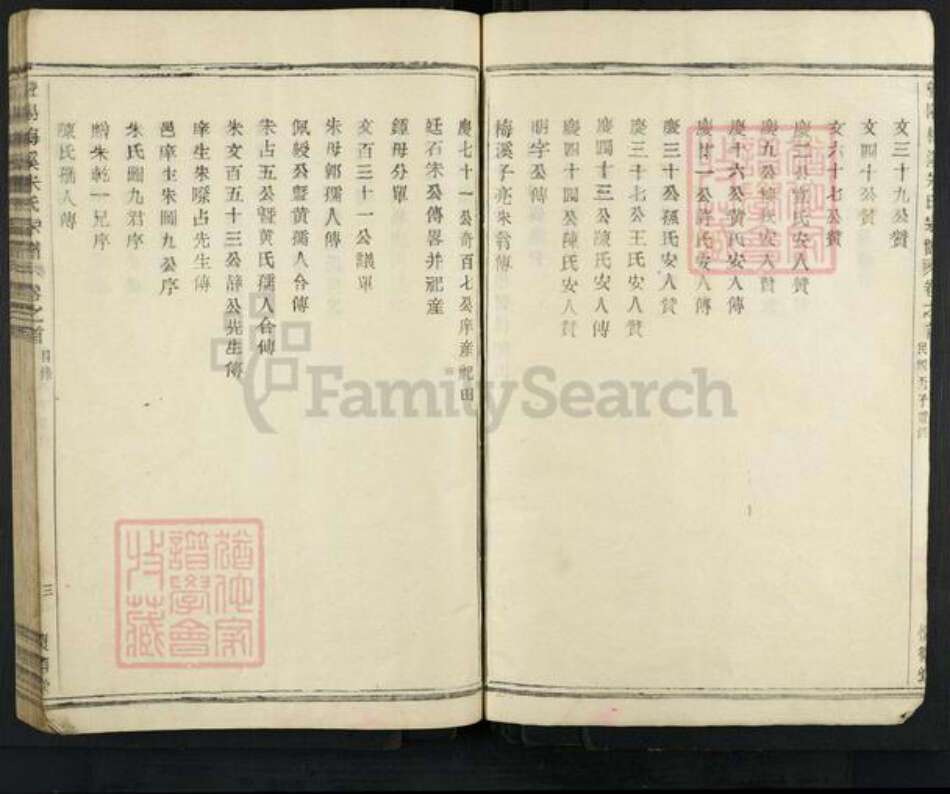 文三十九公贊
文四十公贊
文六十七公贊
慶二公 氏安人贊
慶五公 氏安人贊
慶十六公黃氏安人傳
慶廿一公許氏安人傳
慶三十公孫氏安人贊
慶三十七公王氏安人贊
慶四十三公陳氏安人傳
慶四十四公陳氏安人贊
明字公傳
梅溪子亮朱翁傳
慶七十一公奇百七公庠産祀田
廷石朱公傳畧并祀産
鍾母分單
文百三十一公議單
朱母郭孺人傳
佩綬公暨黃孺人合傳
朱占五公暨黃氏孺人合傳
朱文百五十三公諱公先生傳
庠生朱際占先生傳
邑庠生朱圖九公序
朱氏圖九君序
朱乾一兄序
陳氏孺人傳
梅溪朱氏宗譜 卷之首
三
猶他家譜學會收藏
FamilySearch